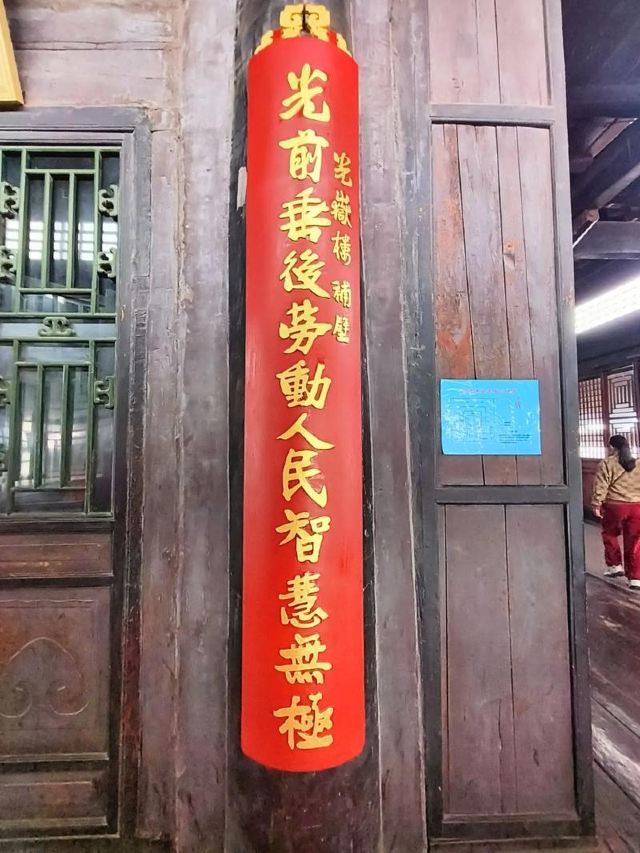 光嶽樓 補壁
光前垂後勞動人民智慧無極